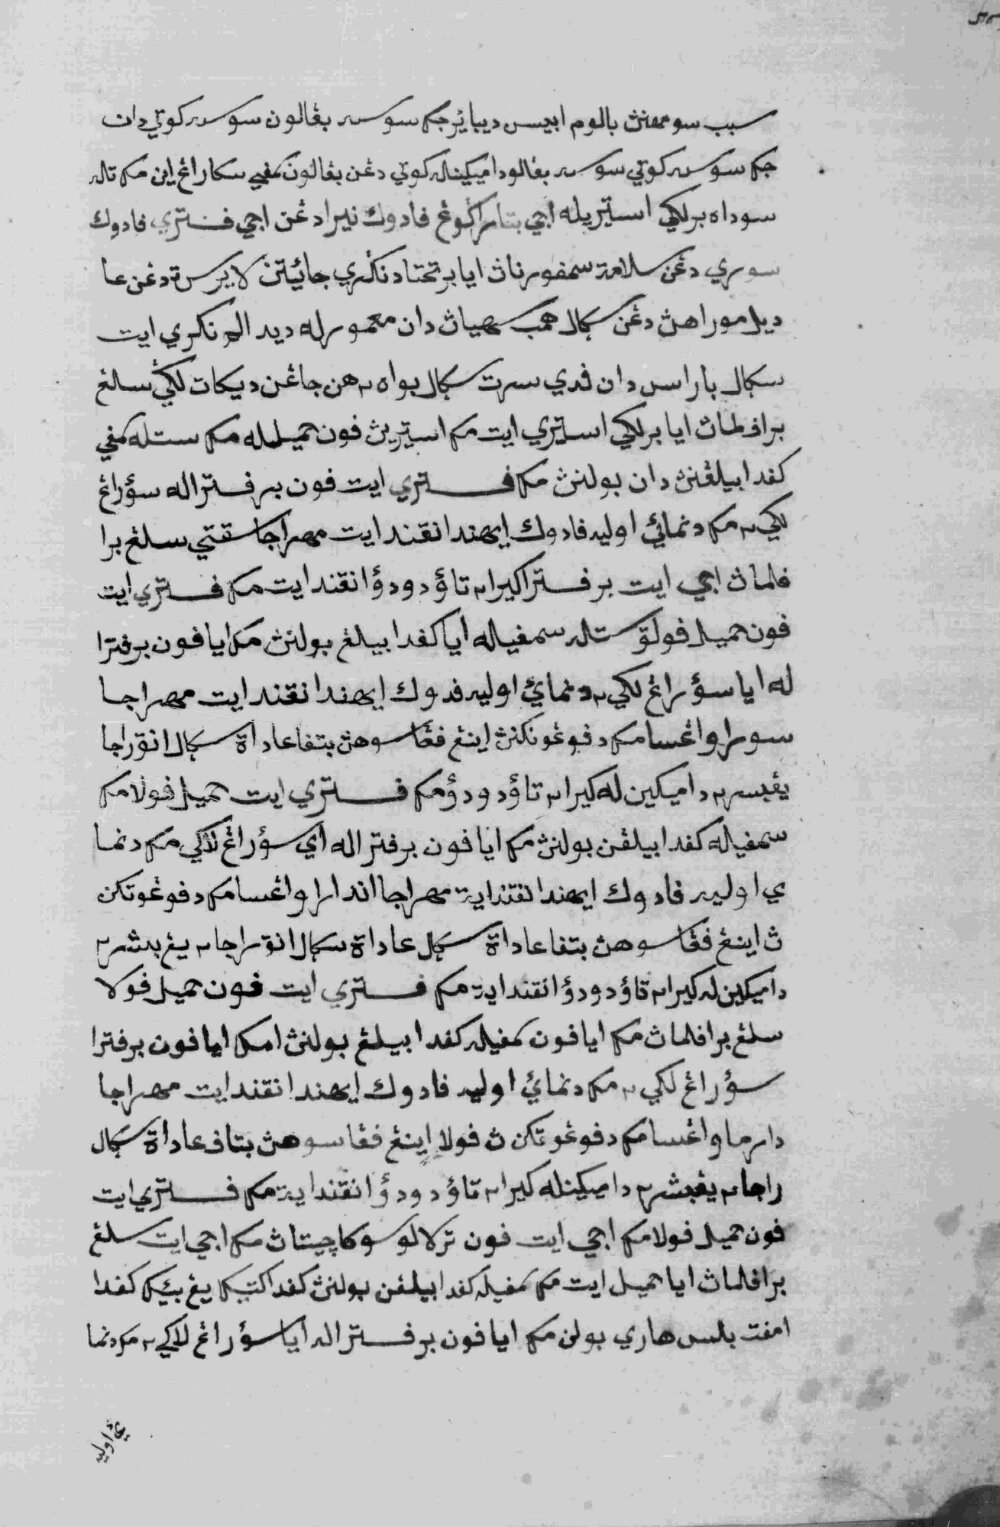 سبب سومڤنڽ بالوم ابيس ديبايرجک سوس بڠالون سوس کوتي دان
جک سوس کوتي سوس بڠالو دميکينله کوتي دڠن بڠالون سکارڠ اين مک تاله
سوداه برلکي استريله اجي بتارا کوڠ فادوک نيرا دڠن اجي فتري فادوک
سوري دڠن سلامة سمفورناڽ ايا برتختا دنڬري جائيتن لا برس ة دڠن عا
ديل موراهڽ دڠن سڬال همب سهياڽ دان معمورله ديدالم نڬري ايت
سڬال باراس دان فدي سرت سڬال بواه٢هن جاڠن ديکات لڬي سلڠ
براف لماڽ ايا برلکي استري ايت مک استريڽ فون حميلله مک ستله
کفد ابيلڠنڽ دان بولنڽ مک فتري ايت فون برفتراله سؤراڠ
لکي٢ مک دنمائي اوليه فادوک ايهندا انقند ايت مهراجا سقتي سلڠ برا
ف لماڽ اجي ايت برفترا کيرا٢ تاؤ دودؤ انقند ايت مک فتري ايت
فون حميل فولق ستله سمفيله ايا کفد ابيلڠ بولنڽ مک ايا فون برفترا
له ايا سؤراڠ لکي٢ دنمائي اوليه فدوک ايهندا انقند ايت مهراجا
سورا واڠسا مک دفوڠوتکنڽ اينڠ فڠاسوهڽ بتفا عادة سڬال انق راجا
يڠبسر٢ دميکين له کيرا٢ تاؤ دودؤ مک فتري ايت حميل فولا مک
سمفيله کفد ابيلڠن بولنڽ مک ايا فون برفتراله اي سؤراڠ لاکي مک دنما
ي اوليه فادوک ايهندا انقند ايت مهراجا اندارا واڠسا مک دفوڠوتکن
ڽ اينڠ فڠاسوهڽ بتفا عادة سڬل عادة سڬال انق راجا٢ يڠ بسر٢
دميکين له کيرا٢ تاؤ دودؤ انقند ايت مک فتري ايت فون حميل فولا
سلڠ براف لماڽ مک ايا فون سمفيله کفد ابيلڠ بولنڽ مک ايا فون برفترا
سؤراڠ لکي٢ مک دنمائي اوليه فادوک ايهندا انقند ايت مهراجا
دارما واڠسا مک دفوڠوتکن ڽ فولا اينڠ فڠاسوهڽ بتاف عادة سڬال
راجا٢ يڠبسر٢ دميکينله کيرا٢ تاؤ دودؤ انقند ايت مک فتري ايت
فون حميل فولا مک اجي ايت فون ترلالو سوکاچيتاڽ مک اجي ايت سلڠ
براف لماڽ ايا حميل ايت مک سمفيله کفد ابيلڠن بولنڽ کفد کتيک يڠ بيک کفد
امفت بلس هاري بولن مک ايا فون برفتراله ايا سؤراڠ لاکي٢ مک دنما
ئي اوليه